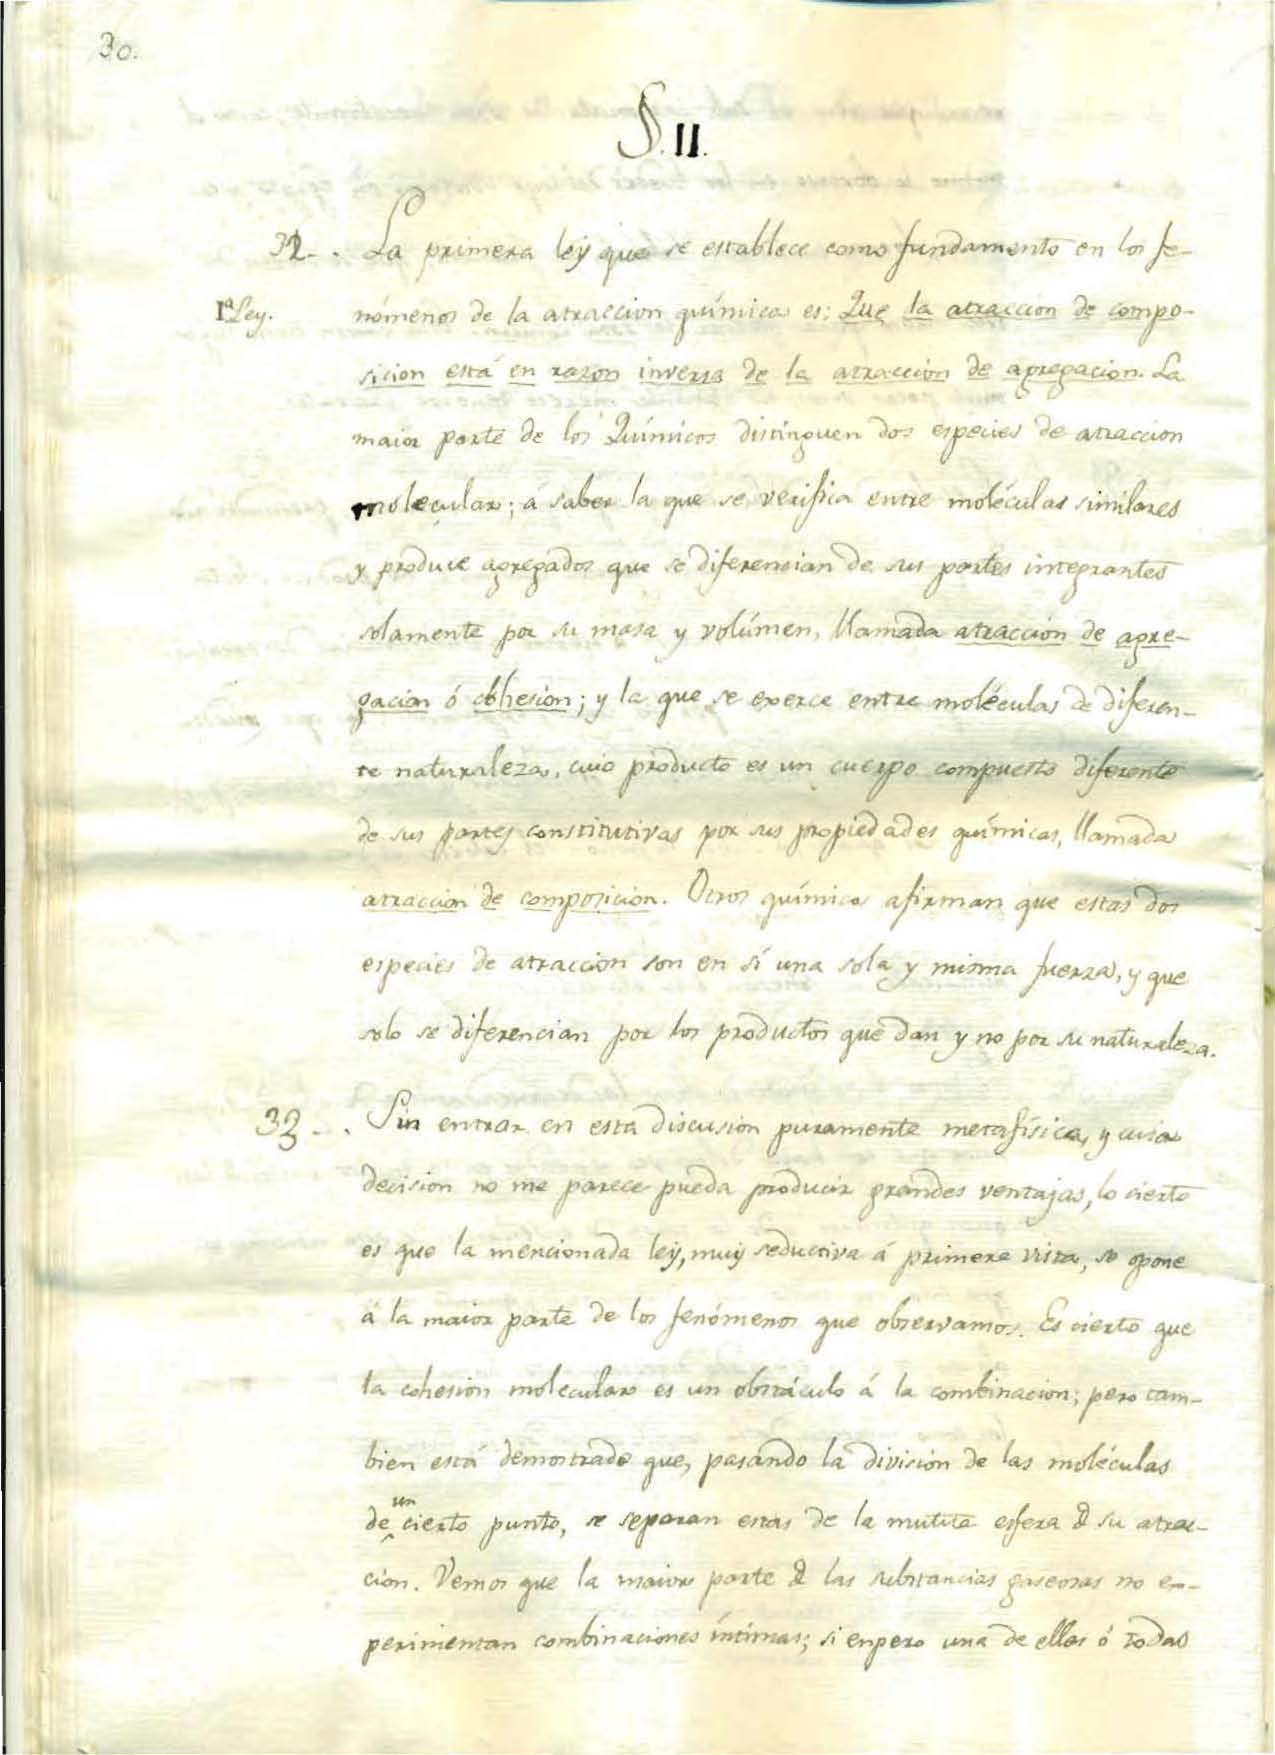 30.
§. II.
32_. La primera ley que se establece como fundamento en los fe-
1ª Ley. nómenos de la atraccion química es: Que la atraccion de compo-
sicion está en razon inversa de la atraccion de agregacion. La
maior parte de los Químicos distinguen dos especies de atraccion
molecular; á saber la que se verifica entre moléculas similares
y produce agregados que se diferencian de sus partes integrantes
solamente por su masa y volúmen, llamada atraccion de agre-
gacion ó cohesion; y la que se exerce entre moléculas de diferen-
te naturaleza, cuio producto es un cuerpo compuesto diferente
de sus partes constitutivas por sus propiedades químicas, llamada
atraccion de composicion. Otros químicos afirman que estas dos
especies de atraccion son en sí una sola y misma fuerza, y que
solo se diferencian por los productos que dan y no por su naturaleza.
33_. Sin entrar en esta discusion puramente metafísica, y cuia
decision no me parece pueda producir grandes ventajas, lo cierto
es que la mencionada ley, muy seductiva á primera vista, se opone
á la maior parte de los fenómenos que observamos. Es cierto que
la cohesion molecular es un obstáculo á la combinacion; pero tam-
bien está demostrado que, pasando la division de las moléculas
de un cierto punto, se separan estas de la mutua esfera d su atrac-
cion. Vemos que la maior parte d las substancias gaseosas no ex-
perimentan combinaciones íntimas; si enpero una de ellas ó todas